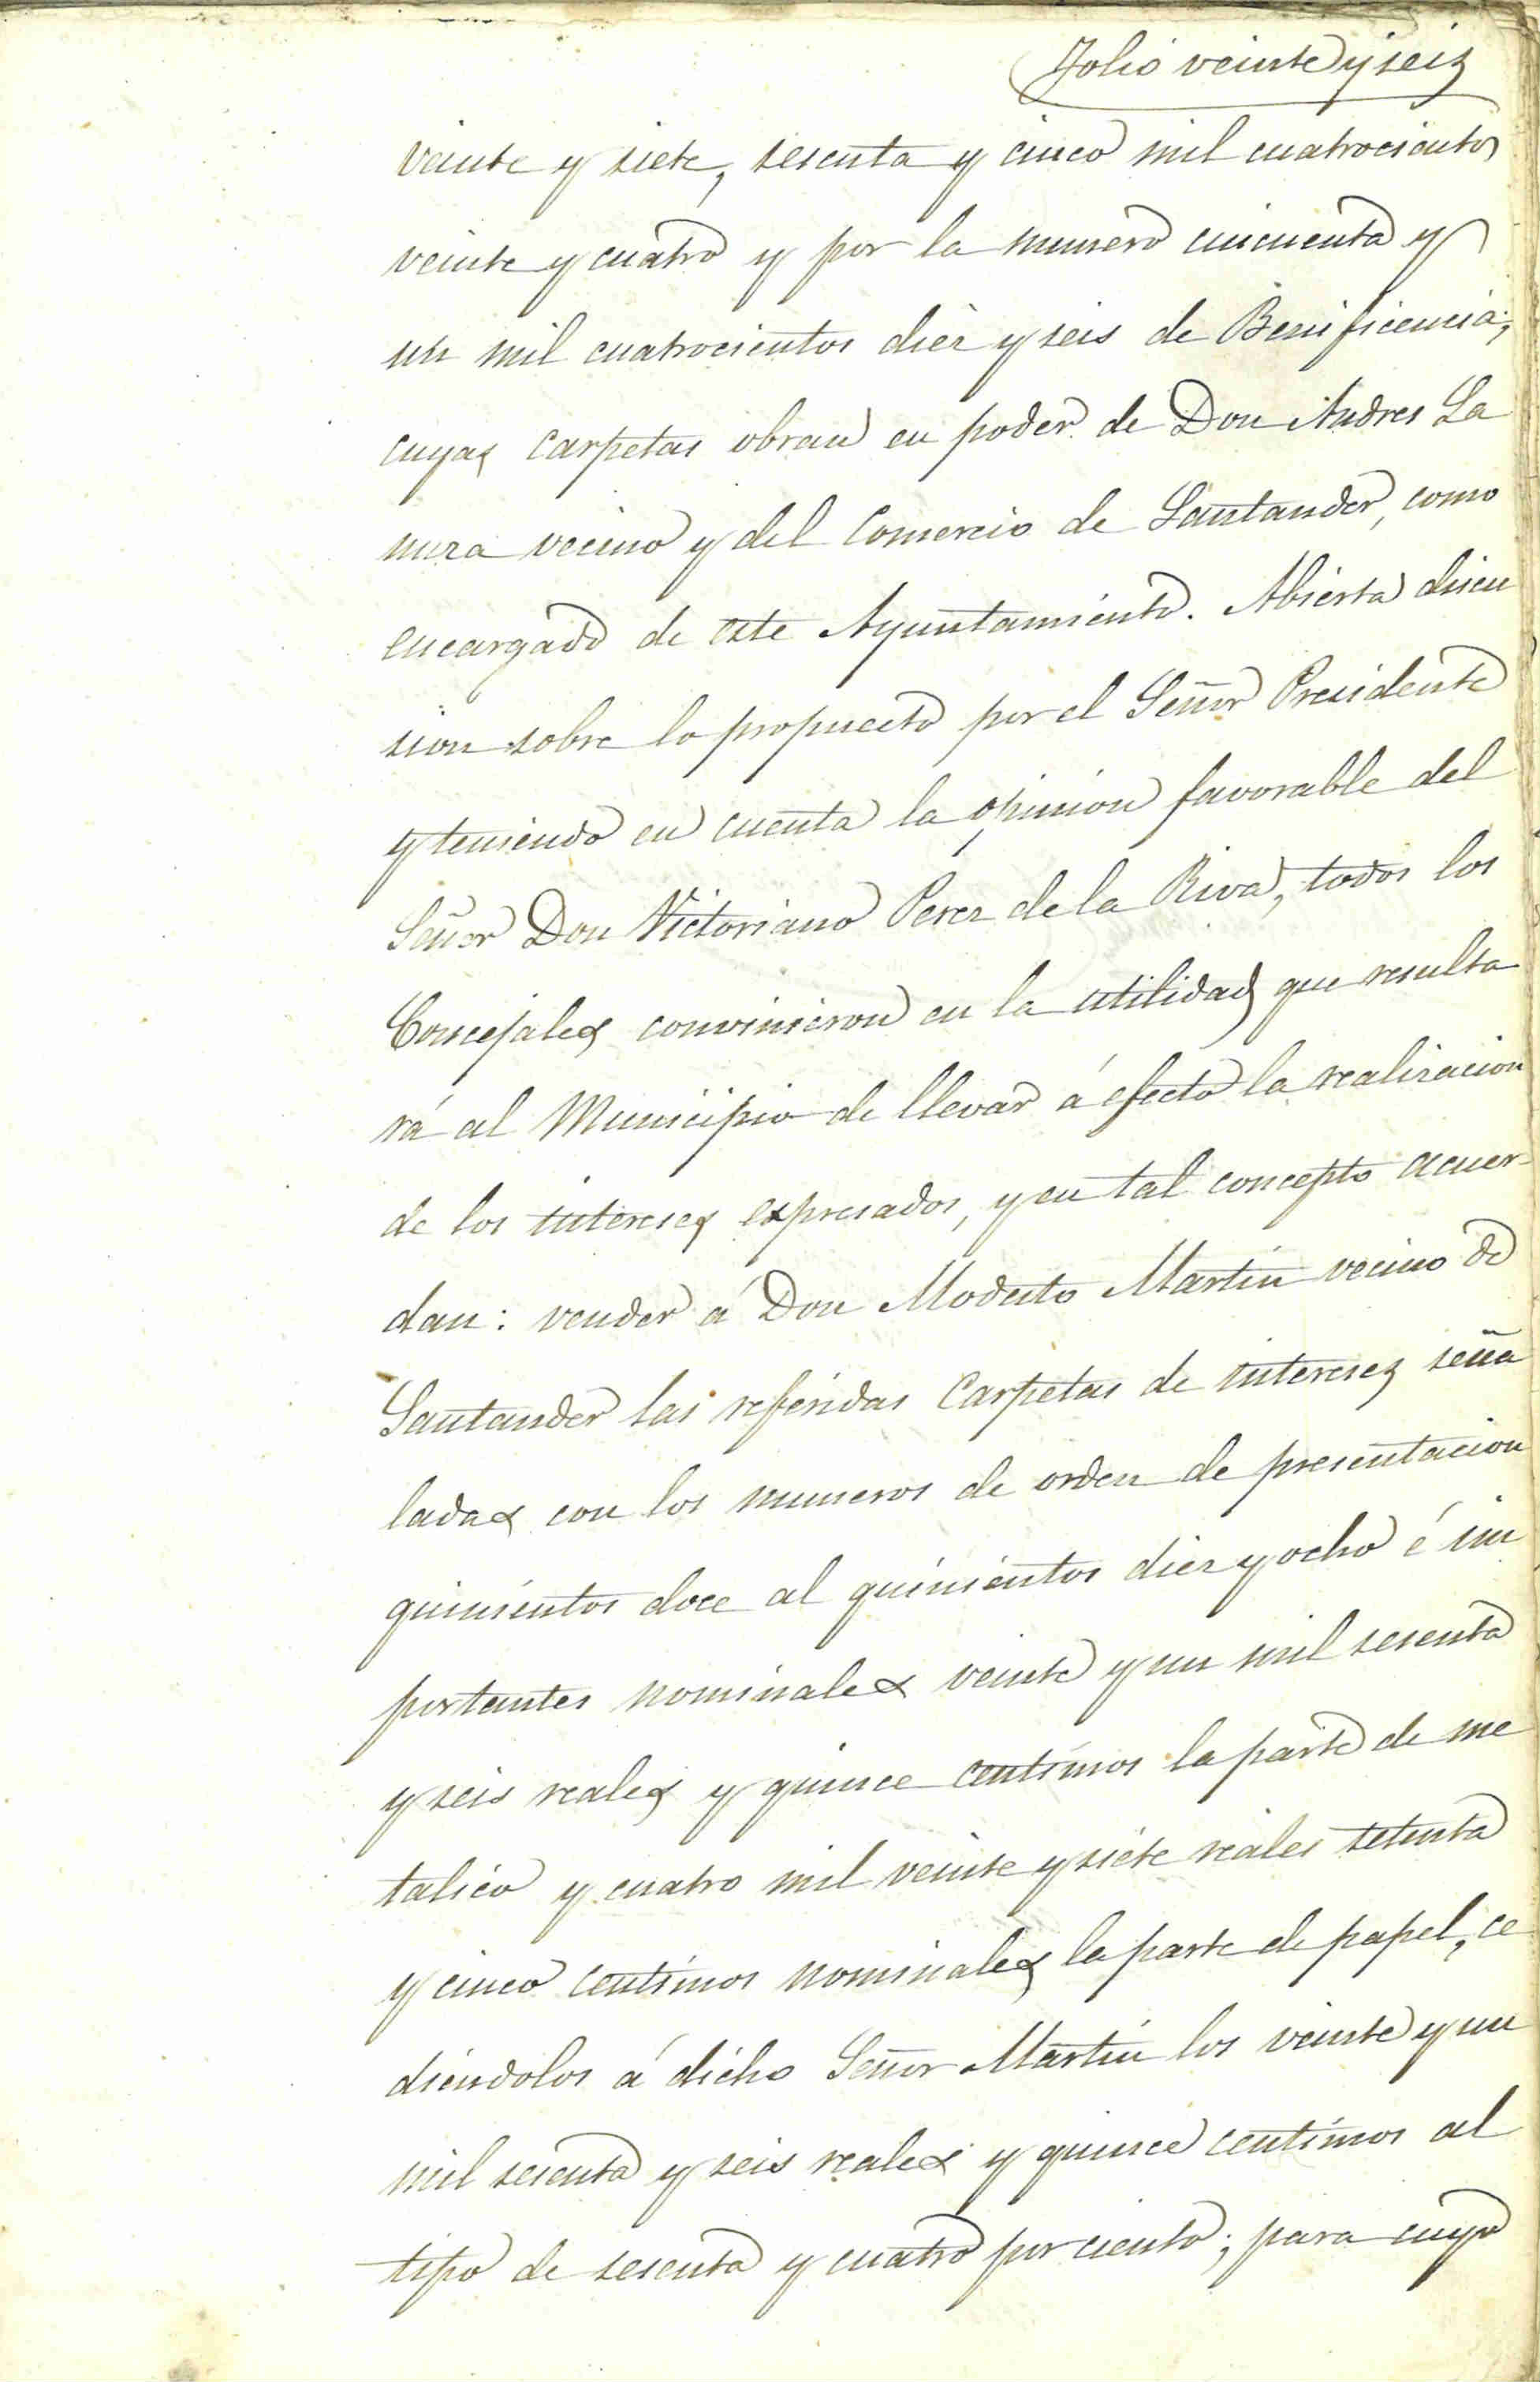 Folio veinte y seis
veinte y siete, sesenta y cinco mil cuatrocientos
veinte y cuatro y por la numero cincuenta y
un mil cuatrocientos diez y seis de Benificencia;
cuyas carpetas obran en poder de Don Andres La
nuza vecino y del Comercio de Santander, como
encargado de este Ayuntamiento. Abierta discu
sion sobre lo propuesto por el Señor Presidente
y teniendo en cuenta la opinion favorable del
Señor Don Victoriano Perez de la Riva, todos los
Concejales convinieron en la utilidad que resulta
rá al Municipio de llevar á efecto la realizacion
de los intereses expresados, y en tal concepto acuer-
dan: vender á Don Modesto Martin vecino de
Santander las referidas Carpetas de intereses seña
ladas con los numeros de orden de presentacion
quinientos doce al quinientos diez y ocho é im
portantes nominales veinte y un mil sesenta
y seis reales y quince centimos la parte de me
talico y cuatro mil veinte y siete reales setenta
y cinco centimos nominales la parte de papel, ce
diendolos á dicho Señor Martin los veinte y un
mil sesenta y seis reales y quince centimos al
tipo de sesenta y cuatro por ciento; para cuyo